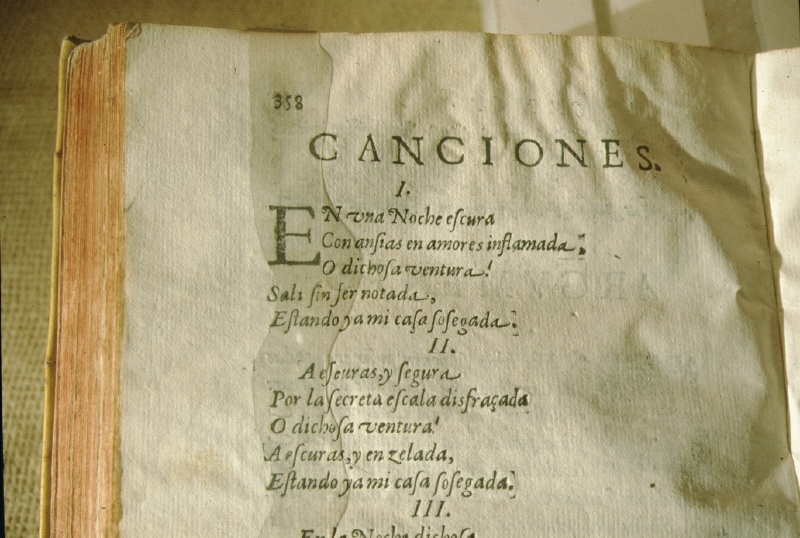 358
CANCIONES.
I.
EN vna Noche eſcura
Con anſias en amores inflamada;
O dichoſa ventura!
Sali ſin ſer notada,
Eſtando ya mi caſa ſoſegada.
II.
A eſcuras, y ſegura
Por la ſecreta eſcala disfraçada
O dichoſa ventura!
A eſcuras, y en zelada,
Eſtando ya mi caſa ſoſegada.
III.
En la Noche dichoſa